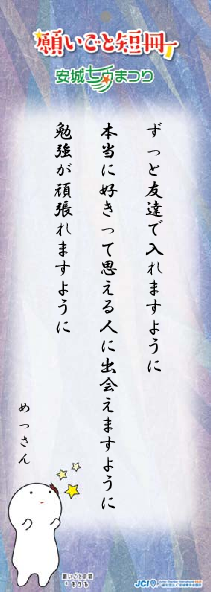 願いごと短冊
安城七夕まつり
ずっと友達で入れますように
本当に好きって思える人に出会えますように
勉強が頑張れますように
めっさん
願いごと短冊
JCI